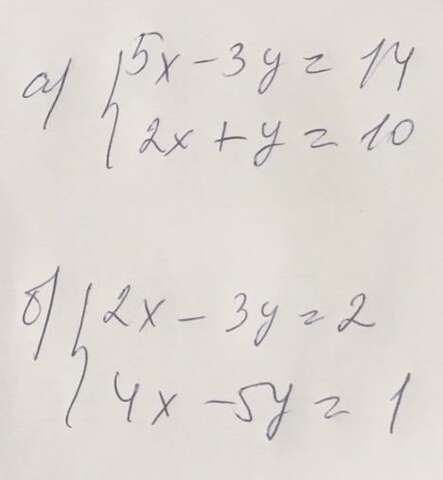 а) { 5x - 3y = 14
2x + y = 10
б) { 2x - 3y = 2
4x - 5y = 1